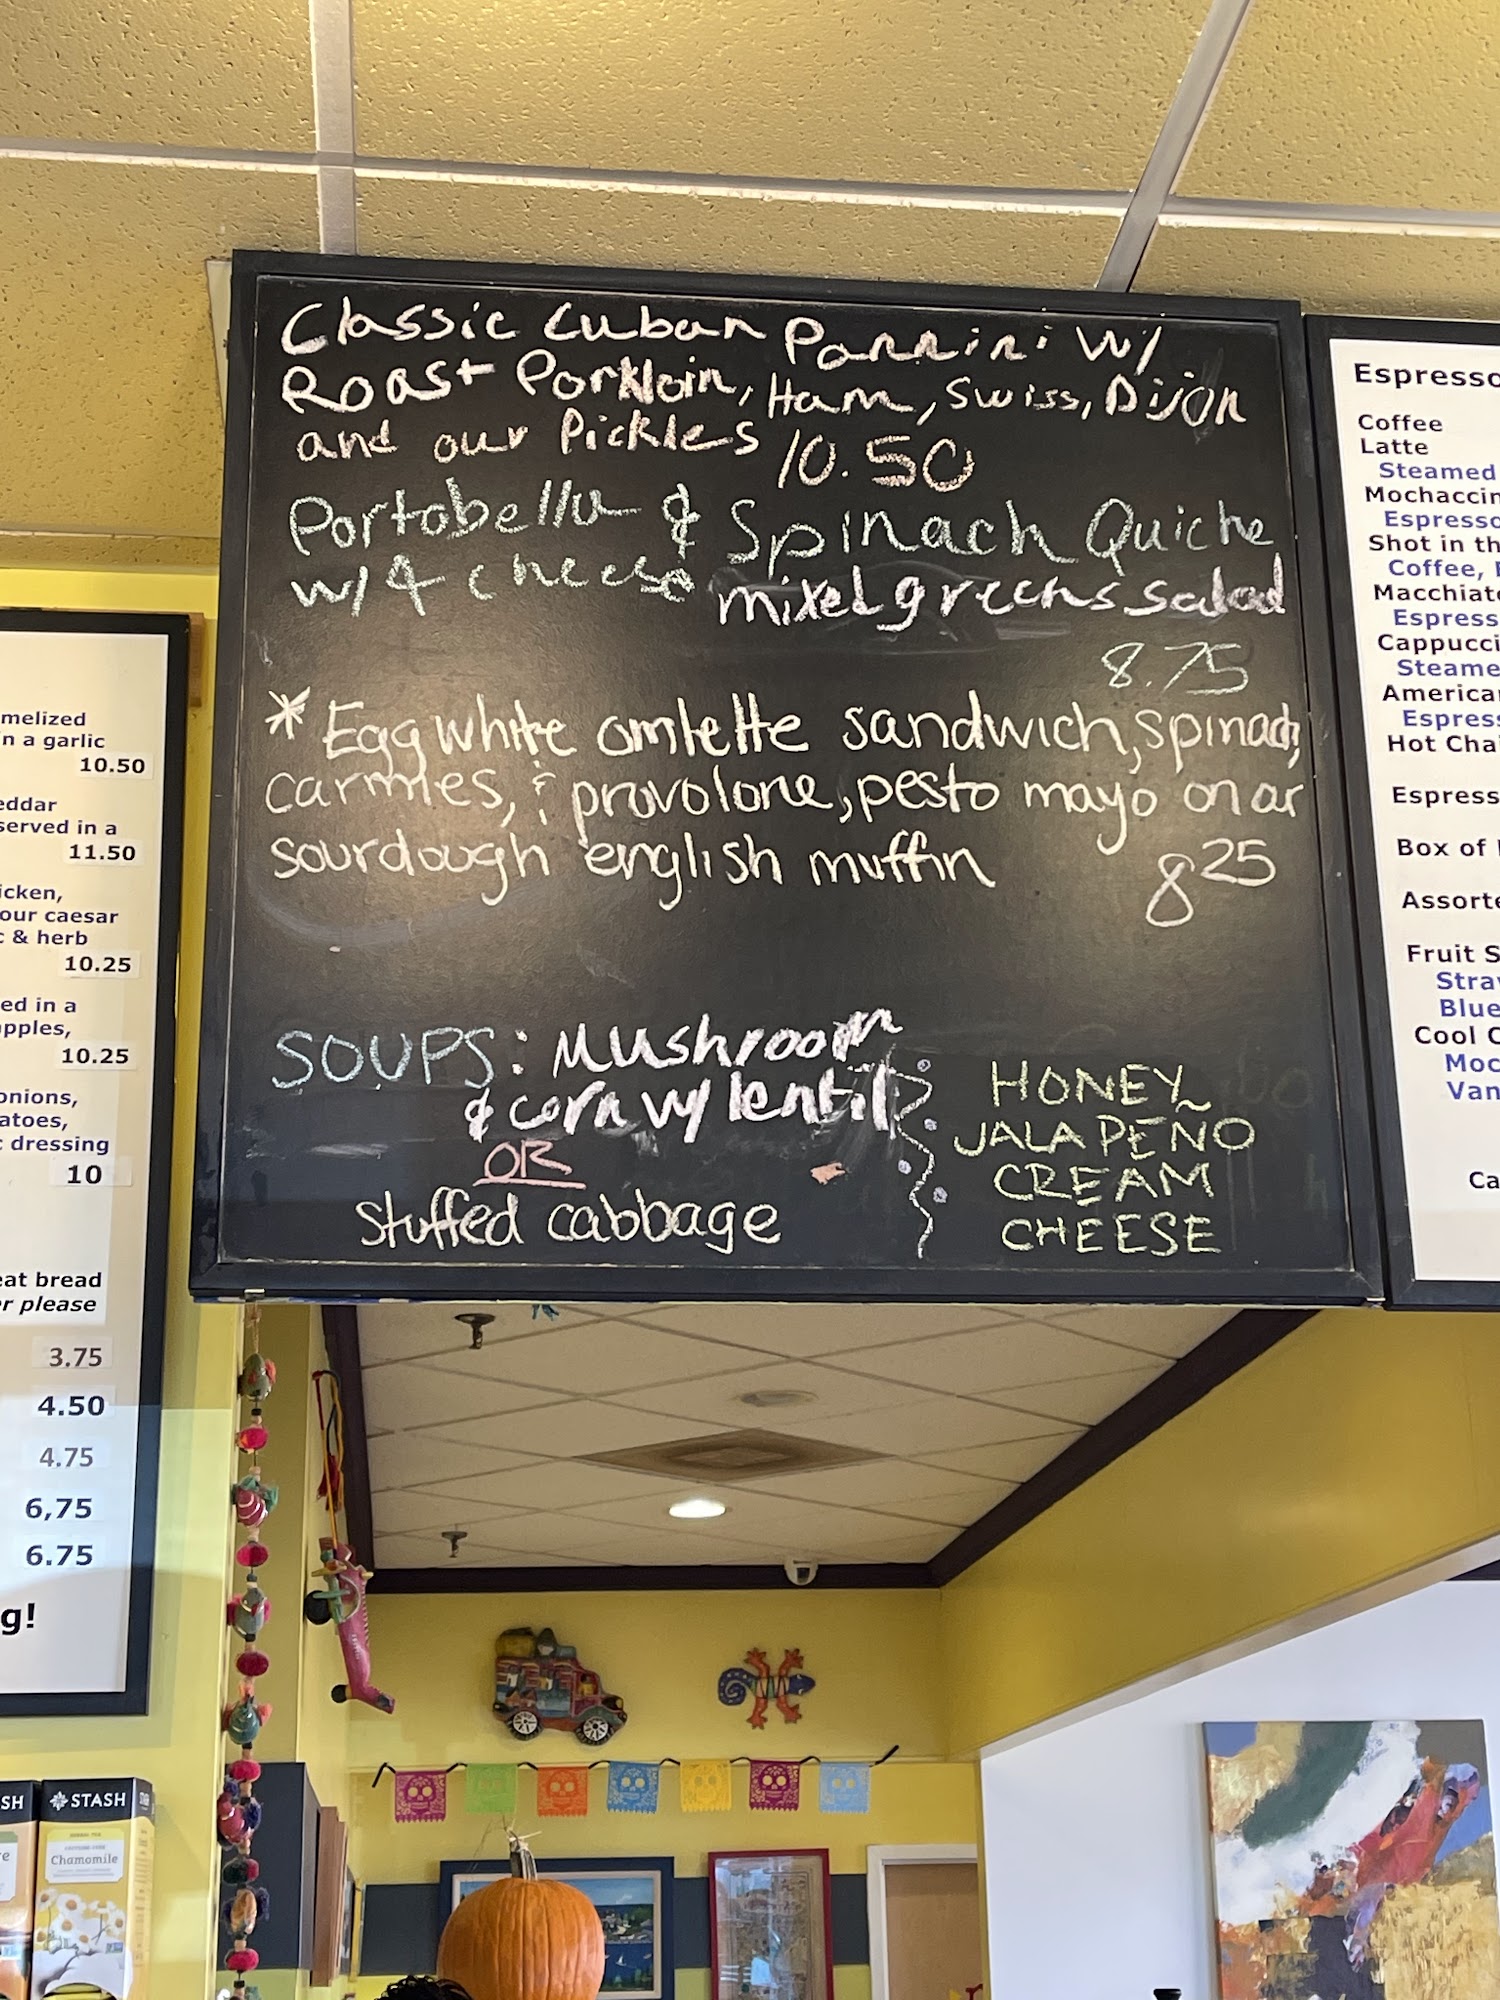 Classic Cuban Pannini w/
Roast Porkloin, Ham, Swiss, Dijon
and our Pickles 10.50
Portobella & Spinach Quiche
w/ 4 cheese mixed greens salad
8.75
*Egg white omlette sandwich, spinach,
carmies, & provolone, pesto mayo on a
sourdough english muffin
8 25
SOUPS: Mushroom
& corn w/ lentil
OR
Stuffed cabbage
HONEY
JALAPENO
CREAM
CHEESE
melized
n a garlic
10.50
eddar
served in a
11.50
icken,
our caesar
& herb
10.25
ed in a
apples,
10.25
onions,
atoes,
dressing
10
eat bread
r please
3.75
4.50
4.75
6,75
6.75
g!
Espresso
Coffee
Latte
Steamed
Mochaccin
Espresso
Shot in th
Coffee,
Macchiato
Espress
Cappucci
Steame
American
Espress
Hot Chai
Espress
Box of
Assorte
Fruit S
Straw
Blue
Cool C
Moc
Van
Ca
SH
STASH
Chamomile